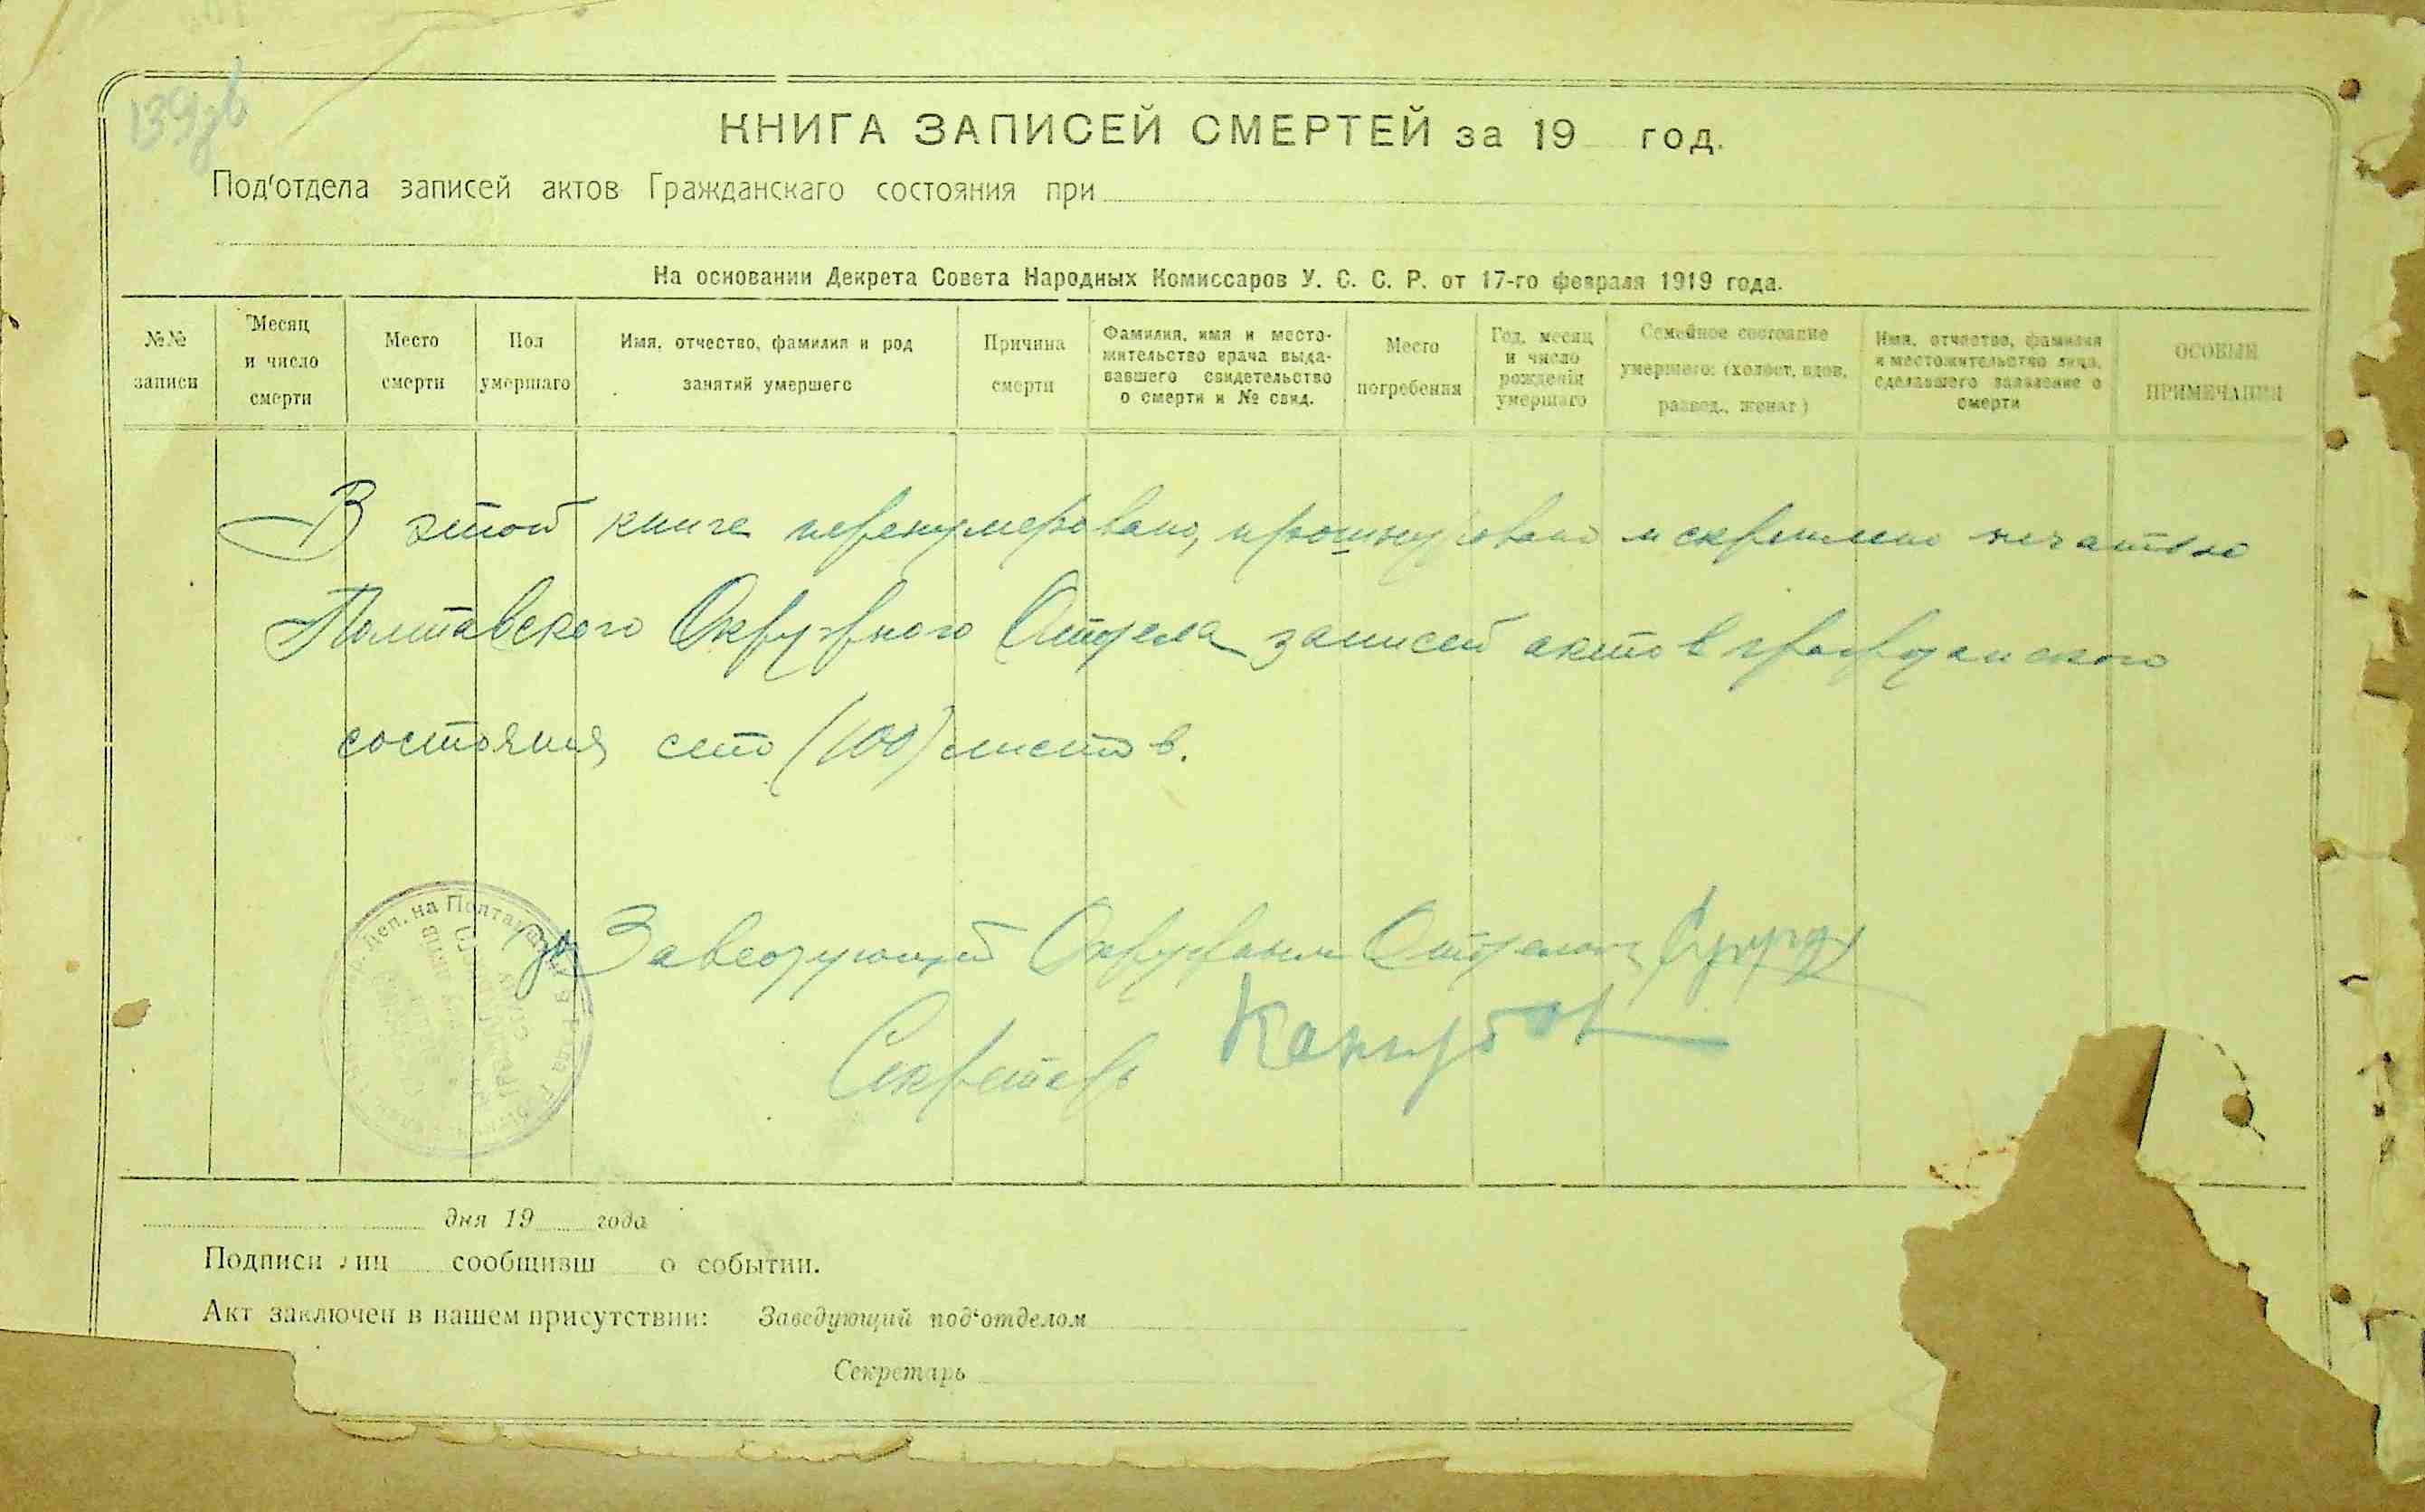 КНИГА ЗАПИСЕЙ СМЕРТЕЙ за 19 год.
Под'отдела записей актов Гражданскаго состояния при
На основании Декрета Совета Народных Комиссаров У. С. С. Р. от 17-го февраля 1919 года.
№№ записи
Месяц и число смерти
Место смерти
Пол умершаго
Имя, отчество, фамилия и род занятий умершего
Причина смерти
Фамилия, имя и место-
жительство врача выда-
вавшего свидетельство
о смерти и № свид.
Место погребения
Год, месяц
и число
рождения
умершаго
Семейное состояние
умершего: (холост, вдов,
развед., женат)
Имя, отчество, фамилия
и местожительство лица,
сделавшего заявление о
смерти
ОСОБЫЯ
ПРИМЕЧАНИЯ
В этой книге перенумеровано, прошнуровано и скреплено печатью
Полтавского Окружного Отдела записей актов гражданского
состояния сто (100) листов.
Заведующий Окружным Отделом
Секретарь
дня 19 года
Подписи лиц сообщивш о событии.
Акт заключен в нашем присутствии: Заведующий под'отделом
Секретарь